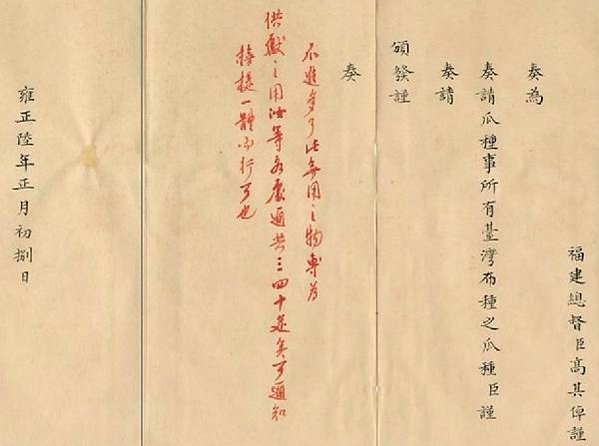 福建總督臣高其倬謹
奏為
奏請瓜種事所有臺灣布種之瓜種臣謹
奏請
頒發謹
奏
不進多了此無用之物專為
供獻之用汝等各處通共三四十足矣可通知
提一體而行可也
雍正陸年正月初捌日